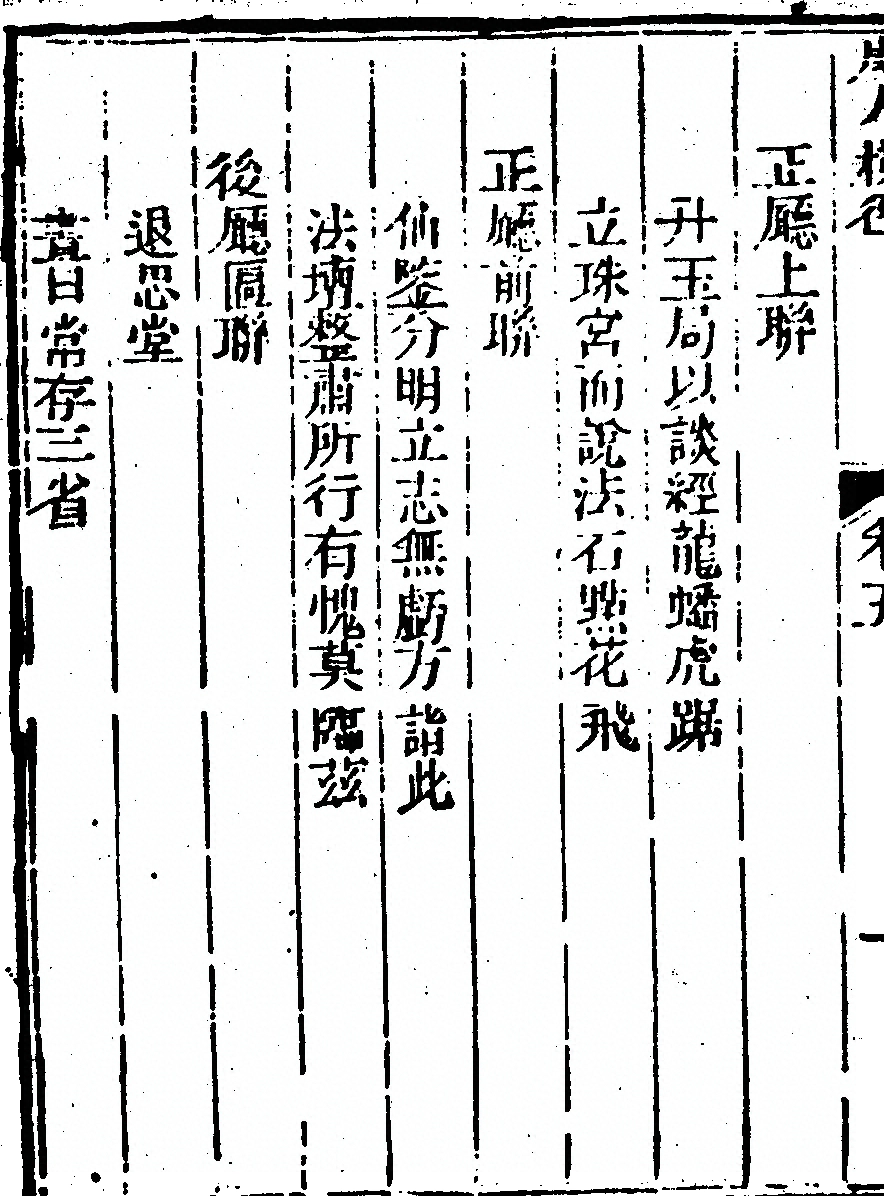 正廳上聯
升玉局以談經龍蟠虎踞
立珠宮而說法石點花飛
正廳前聯
仙鑒分明立志無虧方詣此
法壇整肅所行有愧莫臨茲
後廳匾聯
退思堂
晝日常存三省